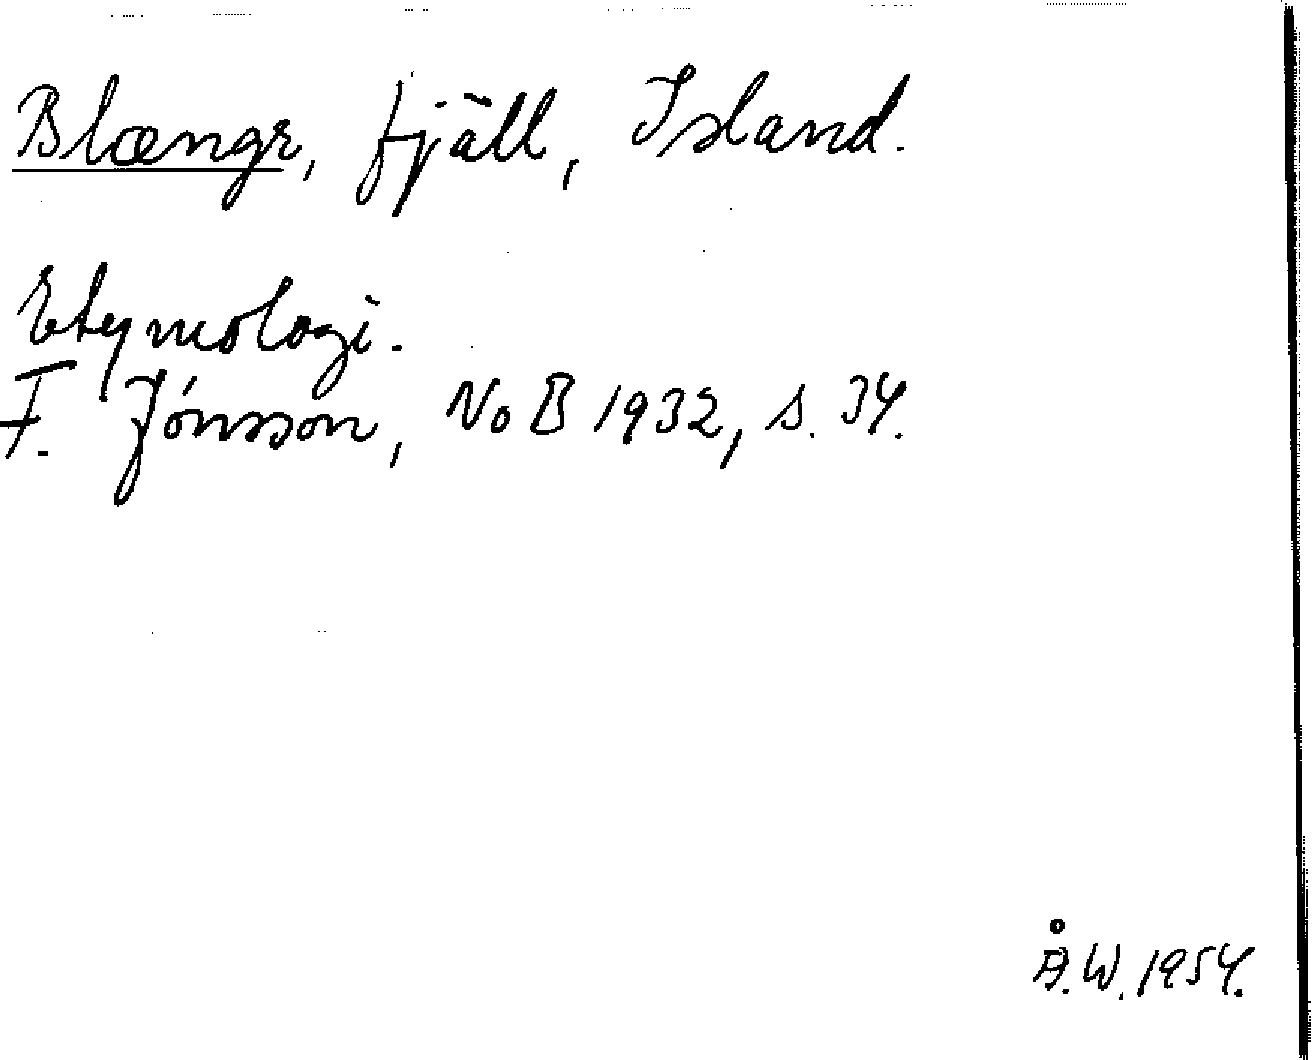 Blængr, fjäll, Island.
Etymologi.
F. Jónsson, NoB 1932, s. 34.
Å.W. 1954.